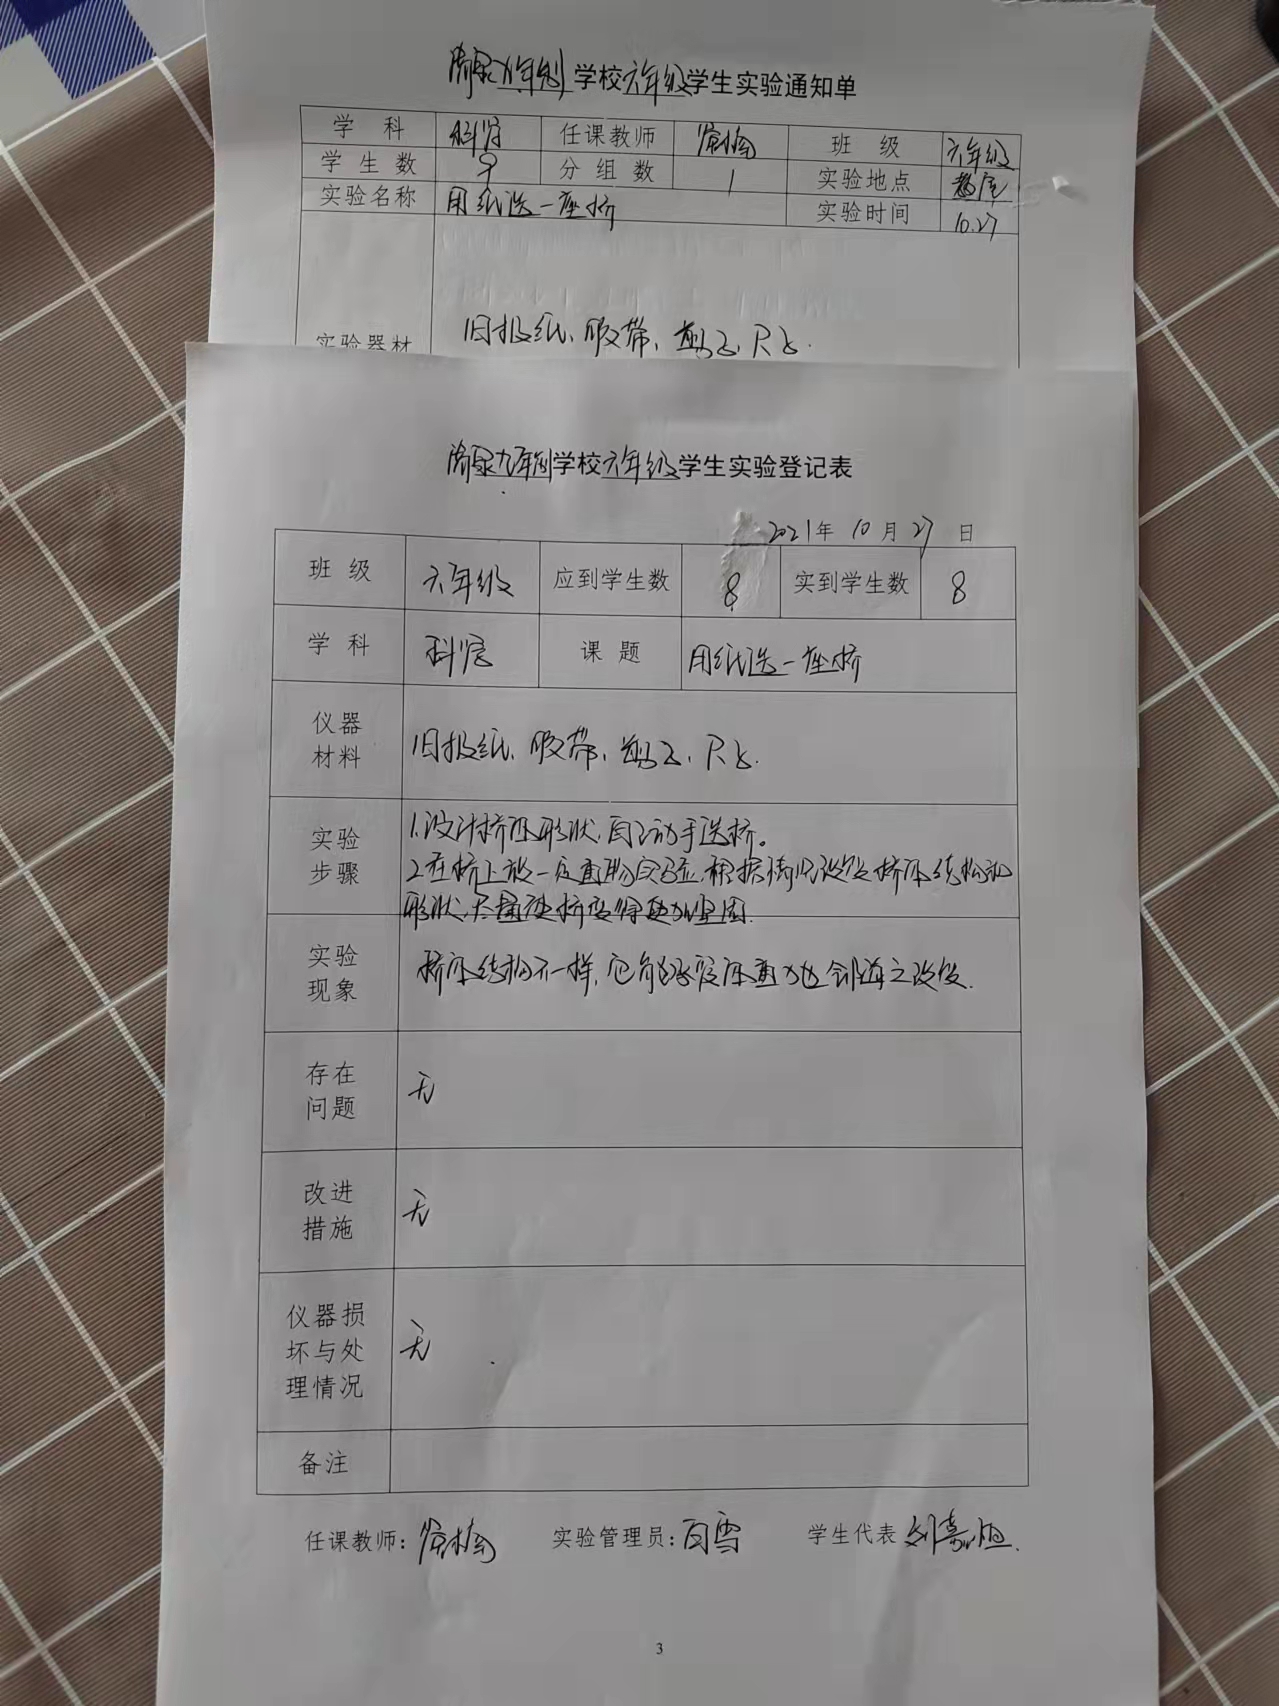 九年制学校六年级学生实验通知单
学 科 科学 任课教师 班 级 六年级
学 生 数 分 组 数 1 实验地点 教室
实验名称 用纸造一座桥 实验时间 10.27
实验器材 旧报纸、胶带、剪子、尺子.
九年制学校六年级学生实验登记表
2021年 10 月 27 日
班 级 六年级 应到学生数 8 实到学生数 8
学 科 科学 课 题 用纸造一座桥
仪器
材料
旧报纸、胶带、剪子、尺子.
实验
步骤
1.设计桥的形状,自己动手造桥。
2.在桥上放一定重物实验,根据情况改变桥的结构和
形状,尽量使桥变得更加坚固.
实验
现象
桥的结构不一样,它能承受的重力也会随之改变.
存在
问题
无
改进
措施
无
仪器损
坏与处
理情况
无
备注
任课教师: 实验管理员:白雪 学生代表
3